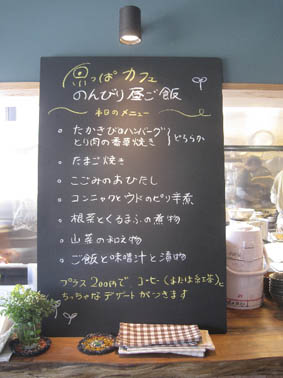 原っぱ カフェ
のんびり昼ご飯
本日のメニュー
たかきびのハンバーグ
とり肉の香草焼き
どちらか
たまご焼き
こごみのおひたし
コンニャクとウドのピリ辛煮
根菜とくるまふの煮物
山菜の和え物
ご飯と味噌汁と漬物
プラス200円で コーヒー(または紅茶)と
ちっちゃなデザートがつきます